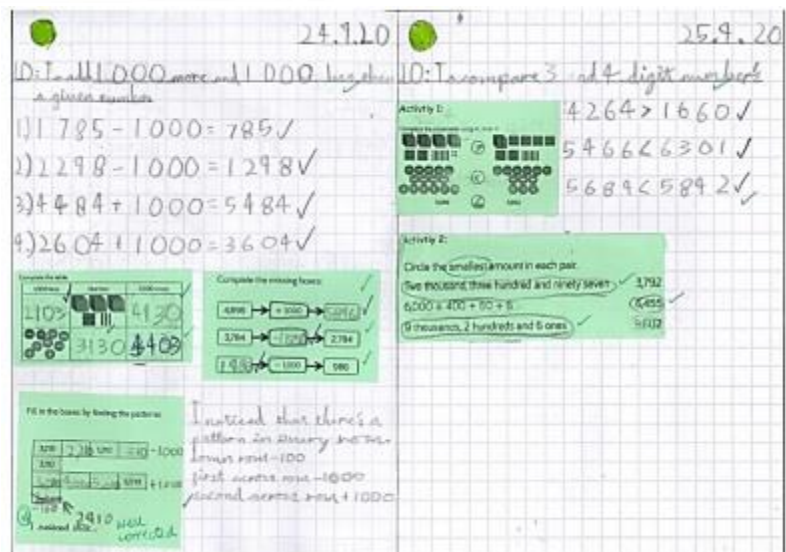 24.9.20
LO: To add 1000 more and 1000 less than
a given number
1) 1785 - 1000 = 785 ✓
2) 2298 - 1000 = 1298 ✓
3) 4484 + 1000 = 5484 ✓
4.) 2604 + 1000 = 3604 ✓
Complete the table.
2103 4130
3130 4403
Complete the missing boxes:
+ 1000
3,784 2,784
- 1,000 980
Fill in the boxes by finding the patterns
- 1000
+ 1000
- 100
2910
I noticed
well
corrected
I noticed that there's a
pattern in every
down row - 100
first across row - 1000
second across row + 1000
25.9.20
LO: To compare 3 and 4 digit numbers
Activity 1:
4264 > 1660 ✓
5466 < 6301 ✓
5689 < 5892 ✓
Activity 2:
Circle the smallest amount in each pair.
Two thousand, three hundred and ninety seven 3,792
6,000 + 400 + 50 + 6 6,455
9 thousands, 2 hundreds and 6 ones